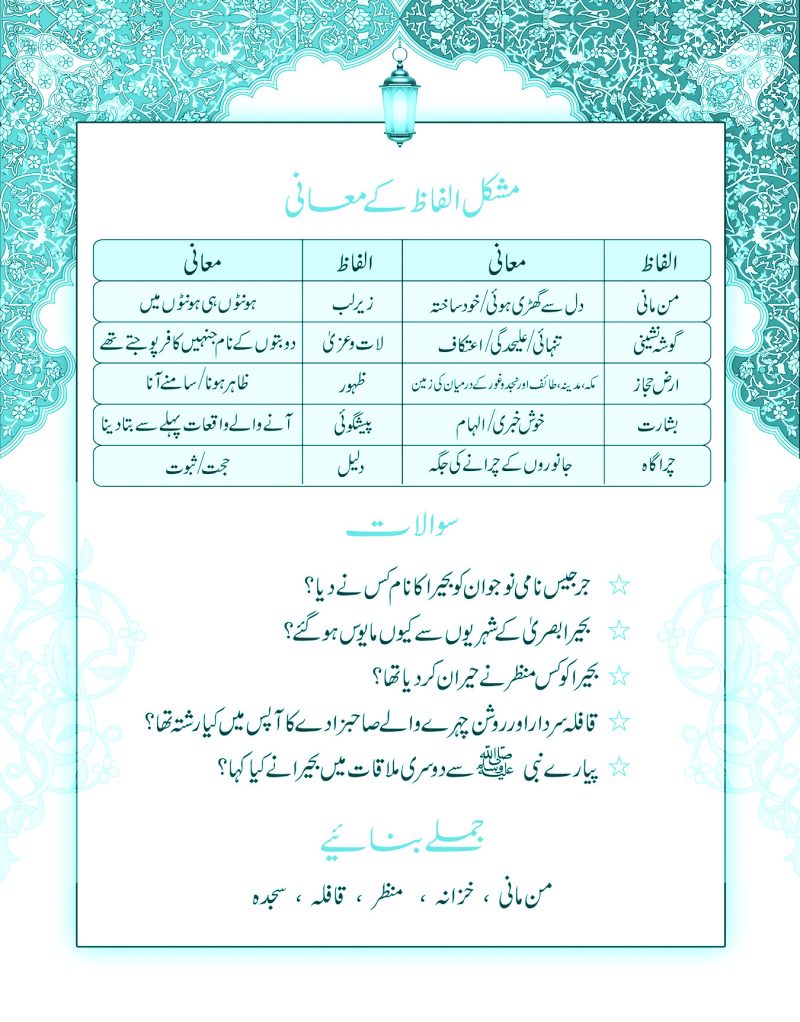 مشکل الفاظ کے معانی
الفاظ معانی الفاظ معانی
من مانی دل سے گھڑی ہوئی/خود ساختہ زیرلب ہونٹوں ہی ہونٹوں میں
گوشہ نشینی تنہائی/علیحدگی/اعتکاف لات و عزیٰ دو بتوں کے نام جنہیں کافر پوجتے تھے
ارض حجاز مکہ، مدینہ، طائف اور نجد و غور کے درمیان کی زمین ظہور ظاہر ہونا/سامنے آنا
بشارت خوش خبری/الہام پیشگوئی آنے والے واقعات پہلے سے بتا دینا
چراگاہ جانوروں کے چرانے کی جگہ دلیل حجت/ثبوت
سوالات
☆ جرجیس نامی نوجوان کو بحیرا کا نام کس نے دیا؟
☆ بحیرا بصریٰ کے شہریوں سے کیوں مایوس ہو گئے؟
☆ بحیرا کو کس منظر نے حیران کر دیا تھا؟
☆ قافلہ سردار اور روشن چہرے والے صاحبزادے کا آپس میں کیا رشتہ تھا؟
☆ پیارے نبی ﷺ سے دوسری ملاقات میں بحیرا نے کیا کہا؟
جملے بنائیے
من مانی ، خزانہ ، منظر ، قافلہ ، سجدہ